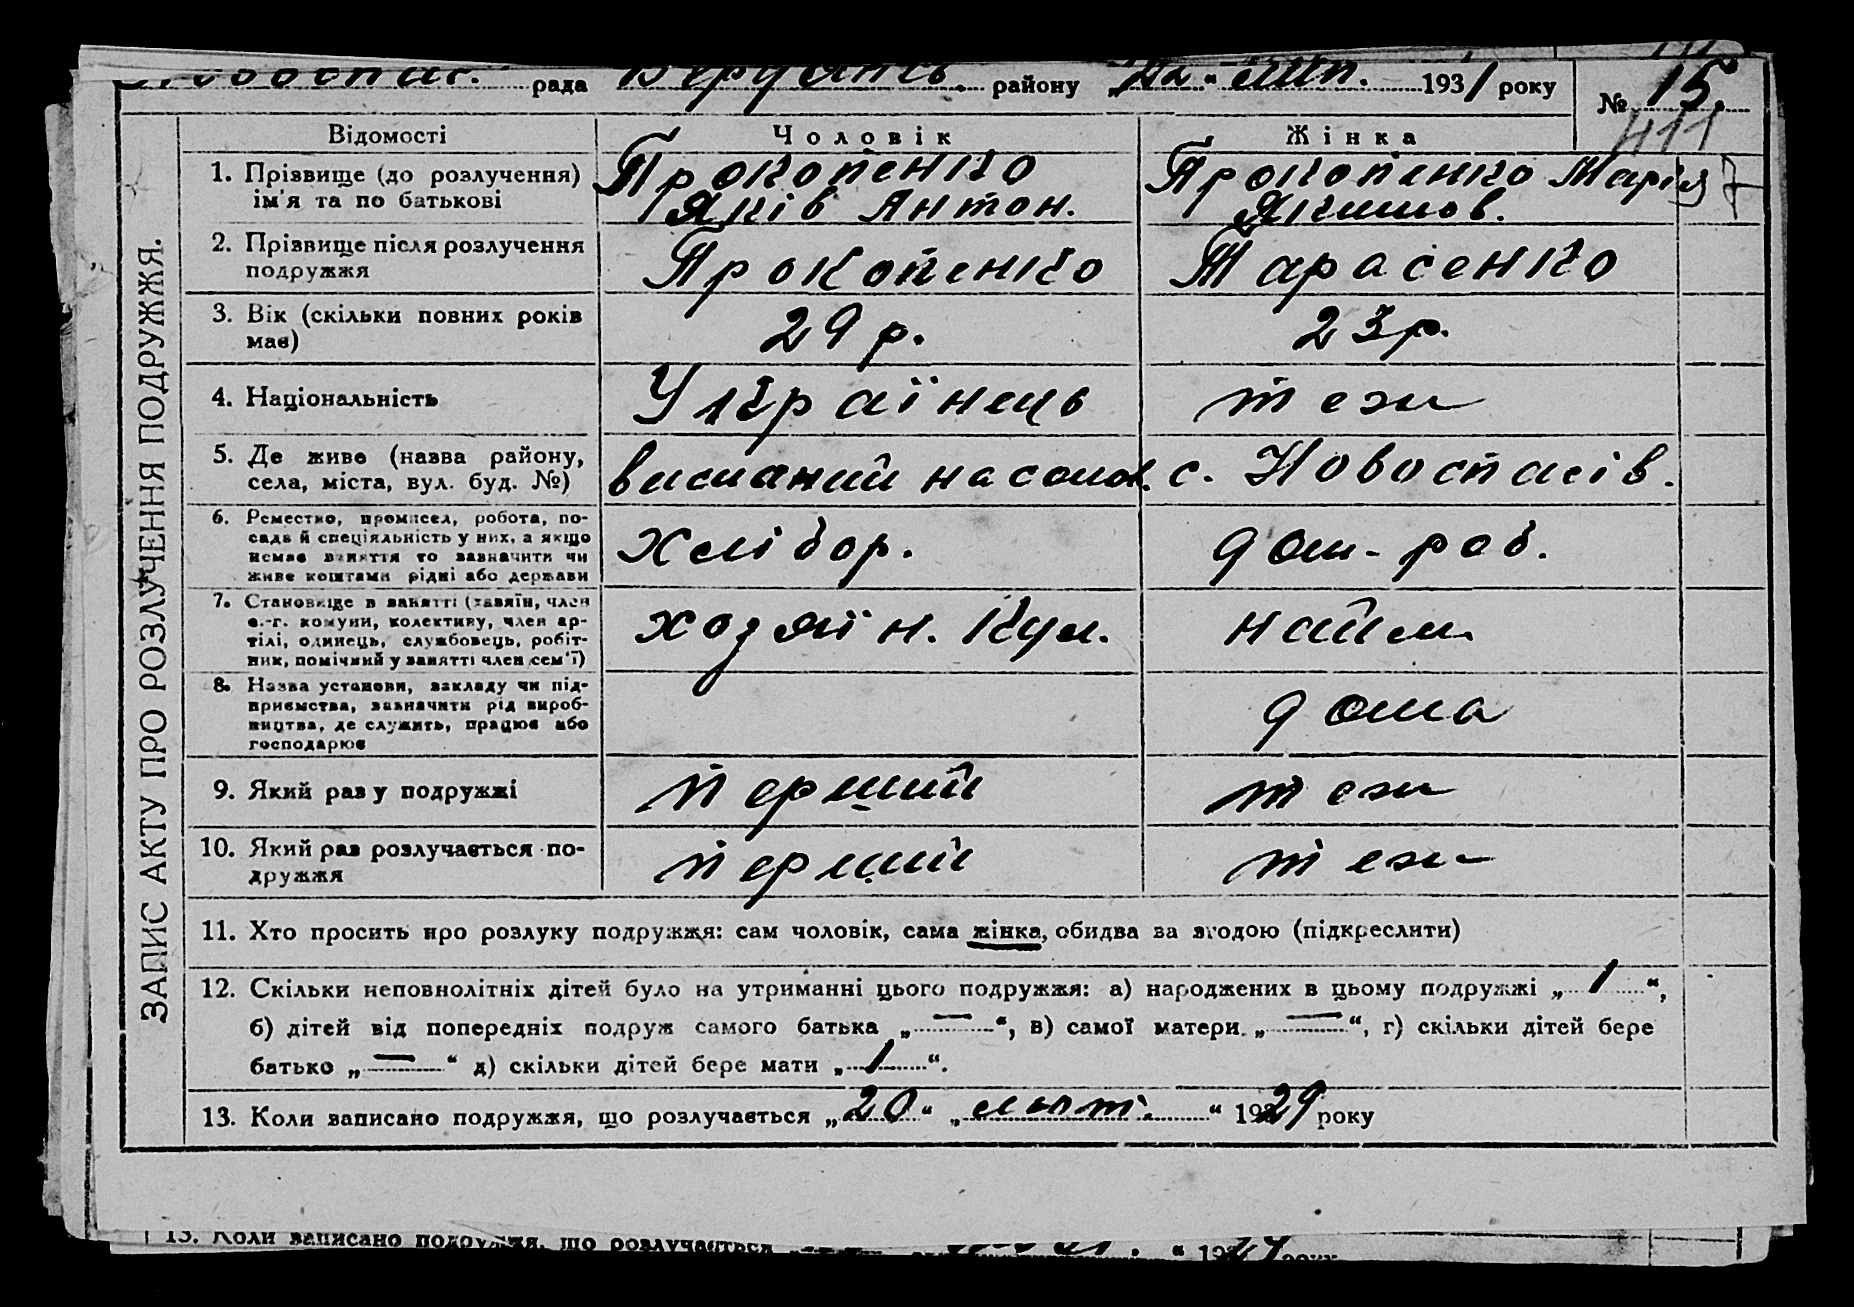 рада Бердянсь. району „22“ лип. 1931 року
№ 15.
411
Відомості Чоловік Жінка
7
ЗАПИС АКТУ ПРО РОЗЛУЧЕННЯ ПОДРУЖЖЯ.
1. Прізвище (до розлучення) Прокопенко Прокопенко Марія
ім'я та по батькові Яків Антон. Якимов.
2. Прізвище після розлучення
подружжя Прокопенко Тарасенко
3. Вік (скільки повних років
має) 29 р. 23 р.
4. Національність Українець теж
5. Де живе (назва району,
села, міста, вул. буд. №) висланий на солов. с. Новоспасів.
6. Ремество, промисел, робота, по-
сада й спеціяльність у них, а якщо
немає заняття то зазначити чи
живе коштами рідні або держави
хлібор. дом-роб.
7. Становище в занятті (хазяїн, член
с.-г. комуни, колективу, член ар-
тілі, одинець, службовець, робіт-
ник, помічний у занятті член сем'ї)
хозяїн. Кул. найм.
8. Назва установи, закладу чи під-
приємства, зазначити рід вироб-
ництва, де служить, працює або
господарює
дома
9. Який раз у подружжі перший теж
10. Який раз розлучається по-
дружжя перший теж
11. Хто просить про розлуку подружжя: сам чоловік, сама жінка, обидва за згодою (підкреслити)
12. Скільки неповнолітніх дітей було на утриманні цього подружжя: а) народжених в цьому подружжі „1“,
б) дітей від попередніх подруж самого батька „—“, в) самої матери „—“, г) скільки дітей бере
батько „—“ д) скільки дітей бере мати „1“.
13. Коли записано подружжя, що розлучається „20“ „лют.“ 1929 року
13. Коли записано подружжя, що розлучається